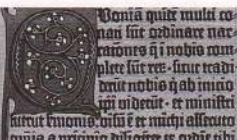 Quoniā quidē multi co
nati sūt ordinare nar
rationes q̄ ī nobis com
plete sūt rerū: sicut tradi
derūt nobis q̄ ab inicio
ip̄i viderūt · et ministri
fuerūt sermonis. visū ē et michi assecuto
omnia a principio diligēter ex ordīe tibi